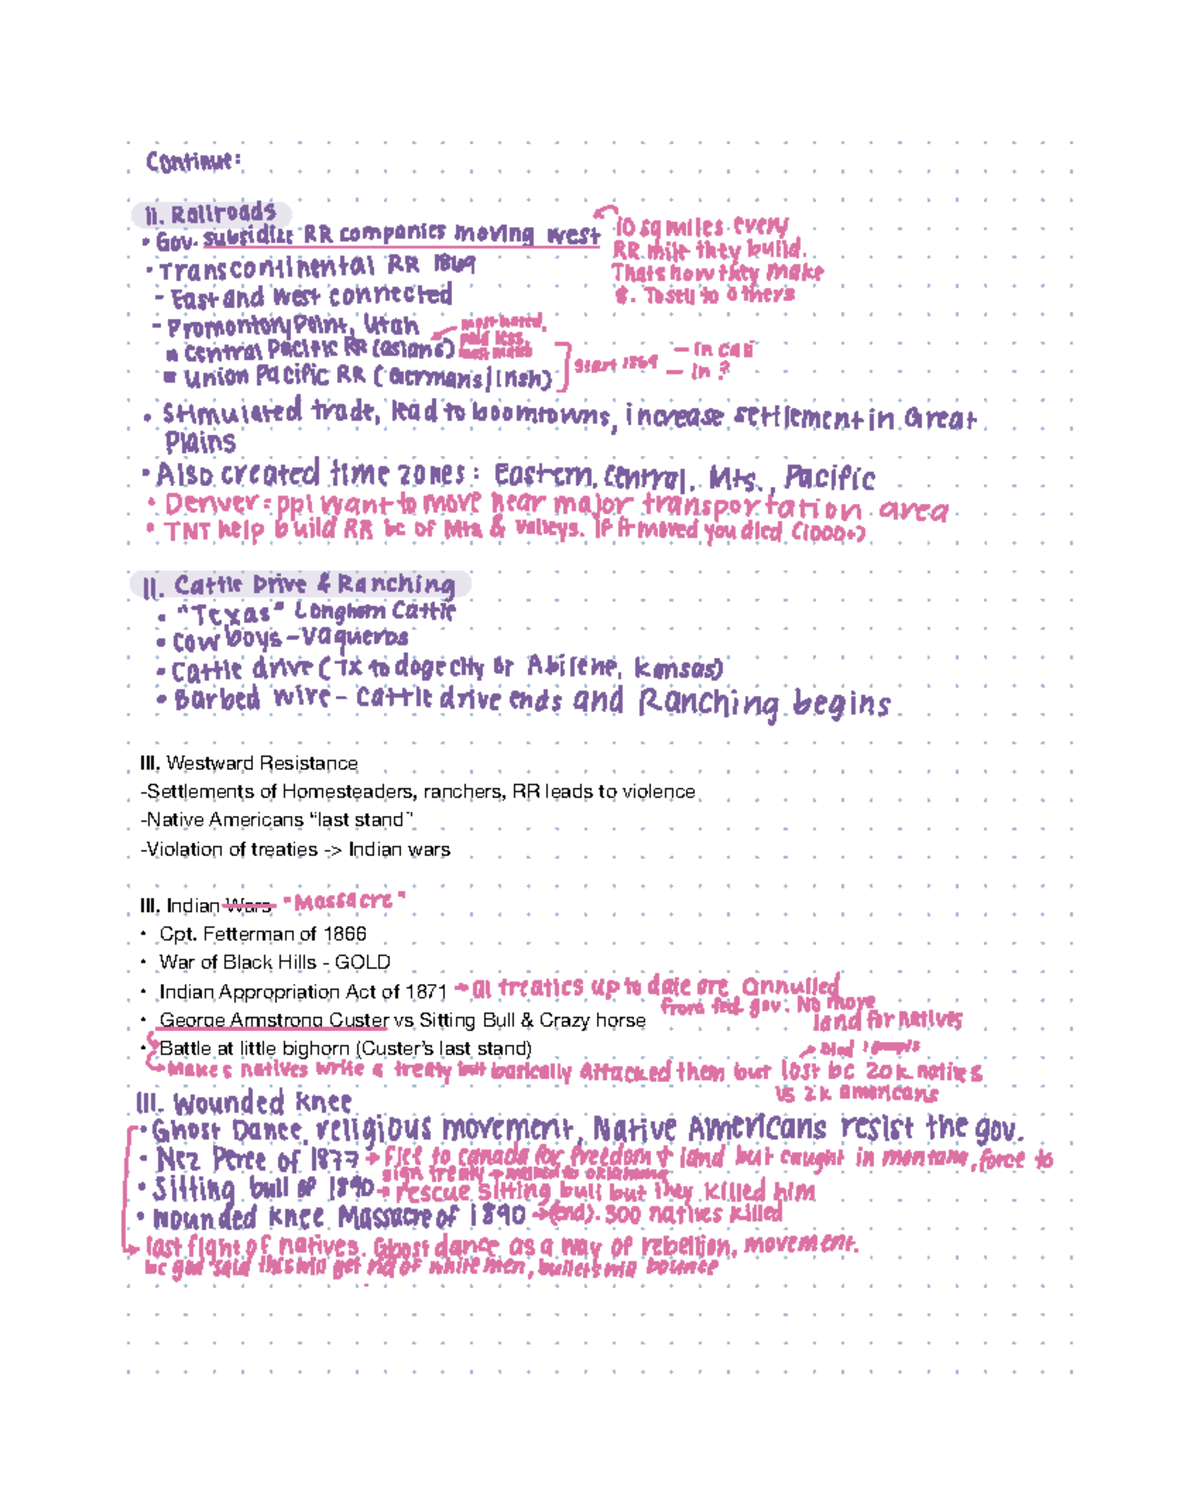 Continue:
ii. Railroads
• Gov. subsidize RR companies moving west
10 sq miles every
RR mile they build.
Thats how they make
$. To sell to others
• Transcontinental RR 1869
- East and west connected
- Promontory Point, Utah
most hated,
paid less,
▪ Central Pacific RR (asians)
▪ Union Pacific RR (Germans/Irish)
Start 1864
- in cali
- in ?
• Stimulated trade, lead to boomtowns, increase settlement in Great
Plains
• Also created time zones: Eastern, Central, Mts., Pacific
• Denver: ppl want to move near major transportation area
• TNT help build RR bc of Mts & valleys. If it moved you died (1000+)
II. Cattle Drive & Ranching
• "Texas" Longhorn Cattle
• Cowboys - Vaqueros
• Cattle drive (TX to doge city or Abilene, Kansas)
• Barbed wire - Cattle drive ends and Ranching begins
III. Westward Resistance
-Settlements of Homesteaders, ranchers, RR leads to violence
-Native Americans “last stand”
-Violation of treaties -> Indian wars
III. Indian Wars "Massacre"
• Cpt. Fetterman of 1866
• War of Black Hills - GOLD
• Indian Appropriation Act of 1871 → all treaties up to date are annulled
from fed. gov. No more
land for natives
• George Armstrong Custer vs Sitting Bull & Crazy horse
• Battle at little bighorn (Custer’s last stand)
↳ Makes natives write a treaty but basically attacked them but lost bc 20k natives
vs 2k americans
III. Wounded Knee
• Ghost Dance, religious movement, Native Americans resist the gov.
• Nez Perce of 1877 → flee to canada for freedom & land but caught in montana, force to
sign treaty → moved to oklahoma
• Sitting bull of 1890 → rescue sitting bull but they killed him
• Wounded Knee Massacre of 1890 → (end). 300 natives killed
→ last fight of natives. Ghost dance as a way of rebellion, movement.
bc god said this will get rid of white men, bullets will bounce